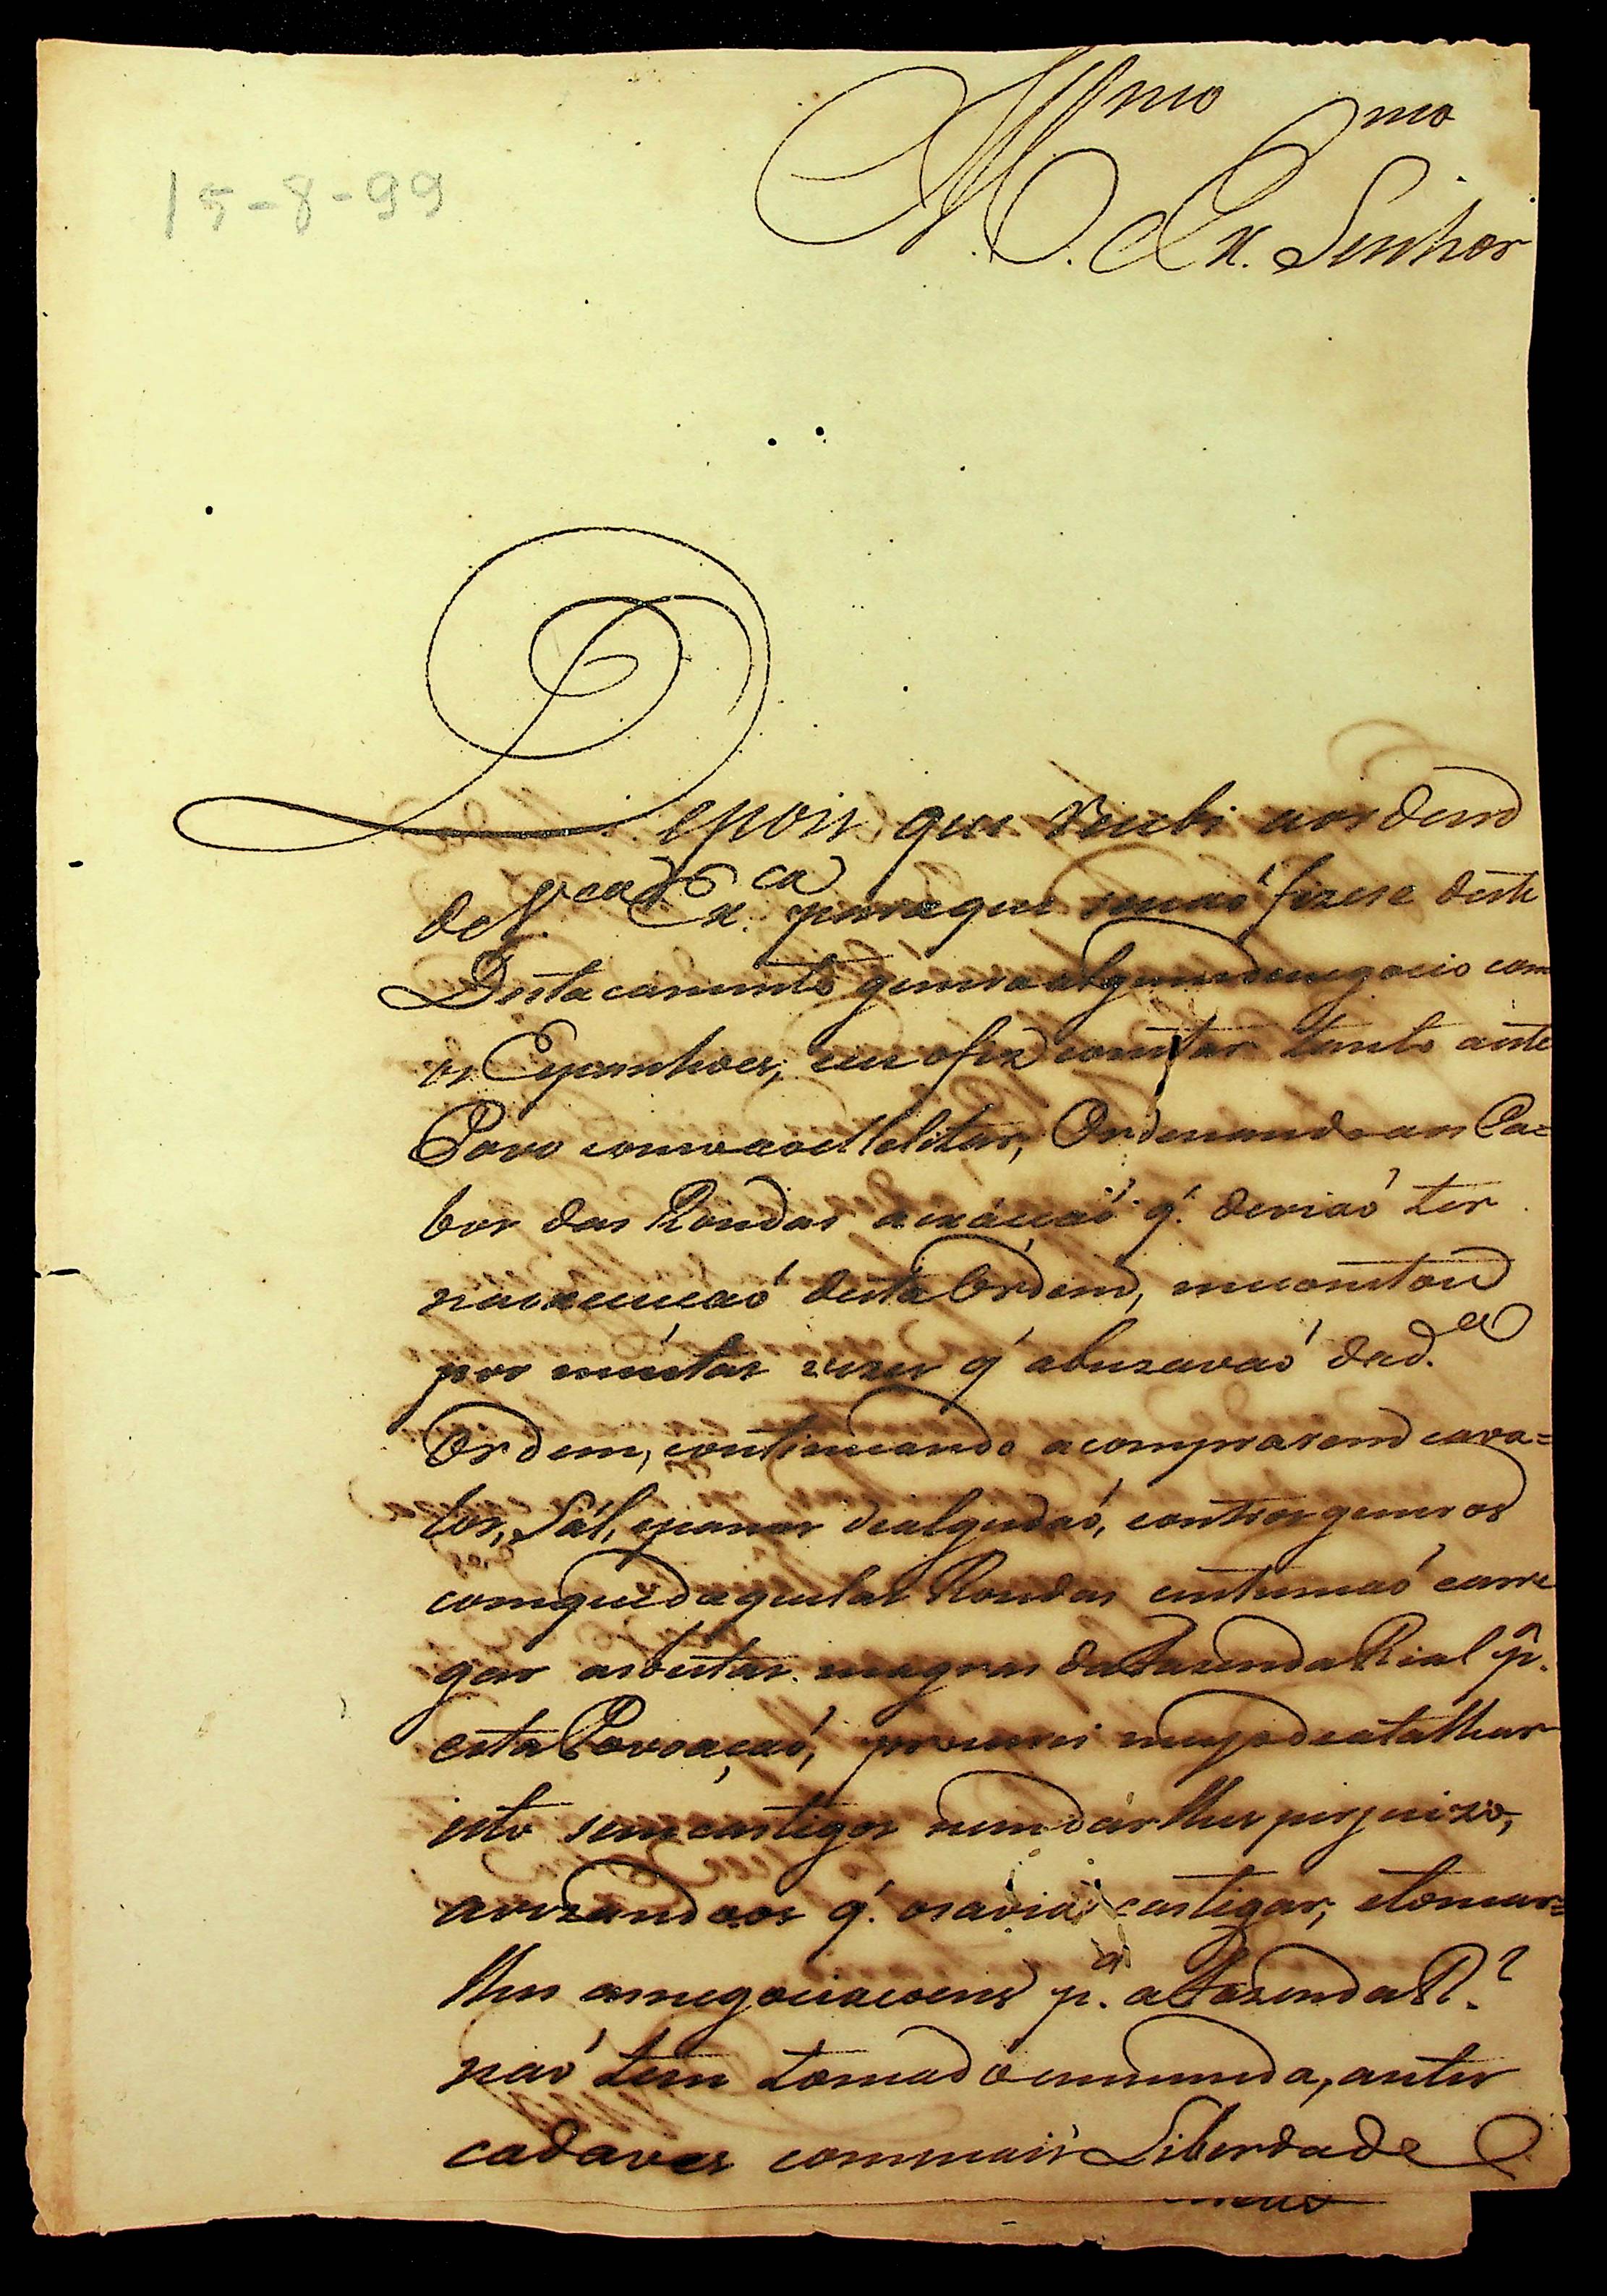 15-8-99
Illmo Exmo Senhor
Depois que recebi aordem
de V.ca Ex.ca paraque senaó fizese deste
Destacamento genero algum denegocio com
os Espanhoes; eu ofiz constar tanto aeste
Povo como aoMelitar, Ordenando aos Ca=
bos das Rondas aexácçaó q. deviaó ter
naexecucaó desta Ordem, meconstou
por muitas vezes q abuzavaó dad.a
Ordem, continuando acomprarem cava=
los, Sál, epanos dealgudaó, contros generos
comque daquelas Rondas custumaó carre
gar asbestas magras daFazenda Rial p.a
esta Povoaçaó, procurei meyo deatalhar
isto sem castigos nem dár lhes perjuizo,
avizandoos q. osavia castigar, etomar=
lhes asnegociacoens p.a aFazenda R.l
naó tem tomado emmenda, antes
cadaves commais Liberdade